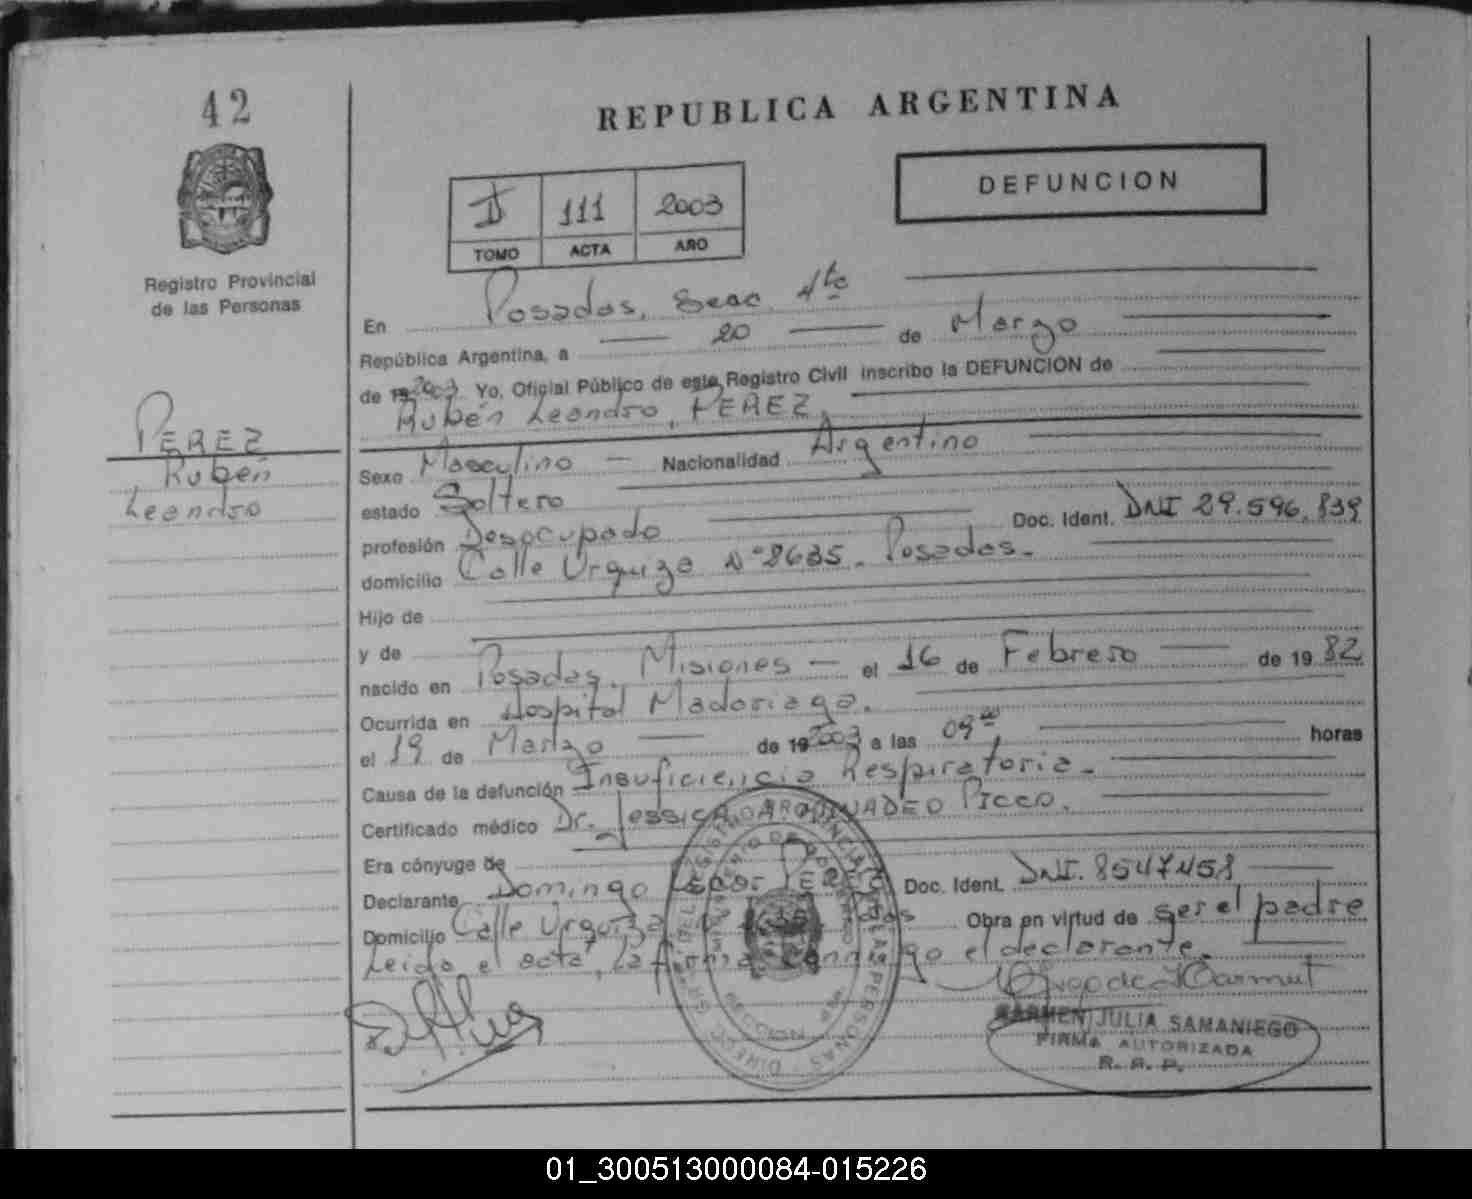 42
REPUBLICA ARGENTINA
DEFUNCION
II 111 2003
TOMO ACTA AÑO
Registro Provincial
de las Personas
En Posadas, Secc. 4ta
República Argentina, a 20 de Marzo
de 19 2003 Yo, Oficial Público de este Registro Civil inscribo la DEFUNCION de
Rubén Leandro, PEREZ.
PEREZ
Rubén
Leandro
Sexo Masculino Nacionalidad Argentino
estado Soltero
profesión Desocupado Doc. Ident. DNI 29.596.839
domicilio Calle Urquiza Nº 8635. Posadas.
Hijo de
y de
nacido en Posadas, Misiones el 16 de Febrero de 19 82
Ocurrida en Hospital Madariaga.
el 19 de Marzo de 19 2003 a las 09 horas
Causa de la defunción Insuficiencia Respiratoria.
Certificado médico Dr. Jessica PICCO.
Era cónyuge de
Declarante Domingo PEREZ Doc. Ident. DNI. 8547458
Domicilio Calle Urquiza Obra en virtud de ser el padre
Leída el acta, la firma conmigo el declarante.
CARMEN JULIA SAMANIEGO
FIRMA AUTORIZADA
R. P. P.
01_300513000084-015226